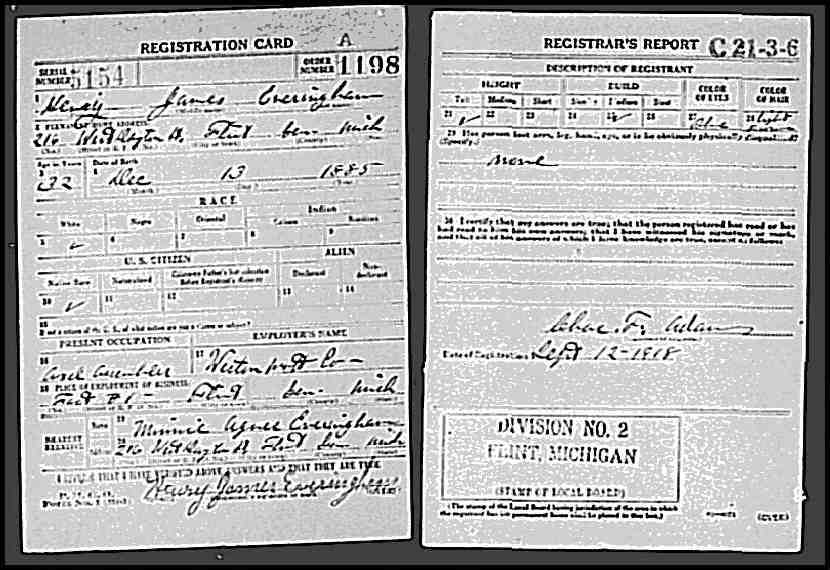 REGISTRATION CARD A
SERIAL NUMBER 5154 ORDER NUMBER 1198
1 Henry James Everingham
216 West Dayton St. Flint Gen. Mich
(No.) (City or town) (County)
Age in Years Date of Birth
32 Dec 13 1885
(Month)
RACE
White Negro Oriental Indian
Citizen Noncitizen
5 ✓ 6 7 8 9
U. S. CITIZEN ALIEN
Native Born Naturalized Declared Non-declarant
10 ✓ 11 12 13 14
15
PRESENT OCCUPATION EMPLOYER'S NAME
16 Axel Assembler 17 Weston Mott Co
18 PLACE OF EMPLOYMENT OR BUSINESS
Flint Gen. Mich
NEAREST RELATIVE Name 19 Minnie Agnes Everingham
Address 20 216 West Dayton St Flint Gen Mich
I AFFIRM THAT I HAVE VERIFIED ABOVE ANSWERS AND THAT THEY ARE TRUE
Henry James Everingham
REGISTRAR'S REPORT C 21-3-6
DESCRIPTION OF REGISTRANT
HEIGHT BUILD COLOR OF EYES COLOR OF HAIR
Tall Medium Short Slender Medium Stout
21 22 23 24 25 ✓ 26 27 Blue 28 Light
29 Has person lost arm, leg, hand, eye, or is he obviously physically disqualified?
(Specify.)
none
30 I certify that my answers are true; that the person registered has read or has
had read to him his own answers; that I have witnessed his signature or mark,
and that all of his answers of which I have knowledge are true, except as follows:
Chas. F. Adams
Date of Registration Sept 12-1918
DIVISION NO. 2
FLINT, MICHIGAN
(STAMP OF LOCAL BOARD)
(The stamp of the Local Board having jurisdiction of the area in which
the registrant has his permanent home shall be placed in this box.)
(OVER)